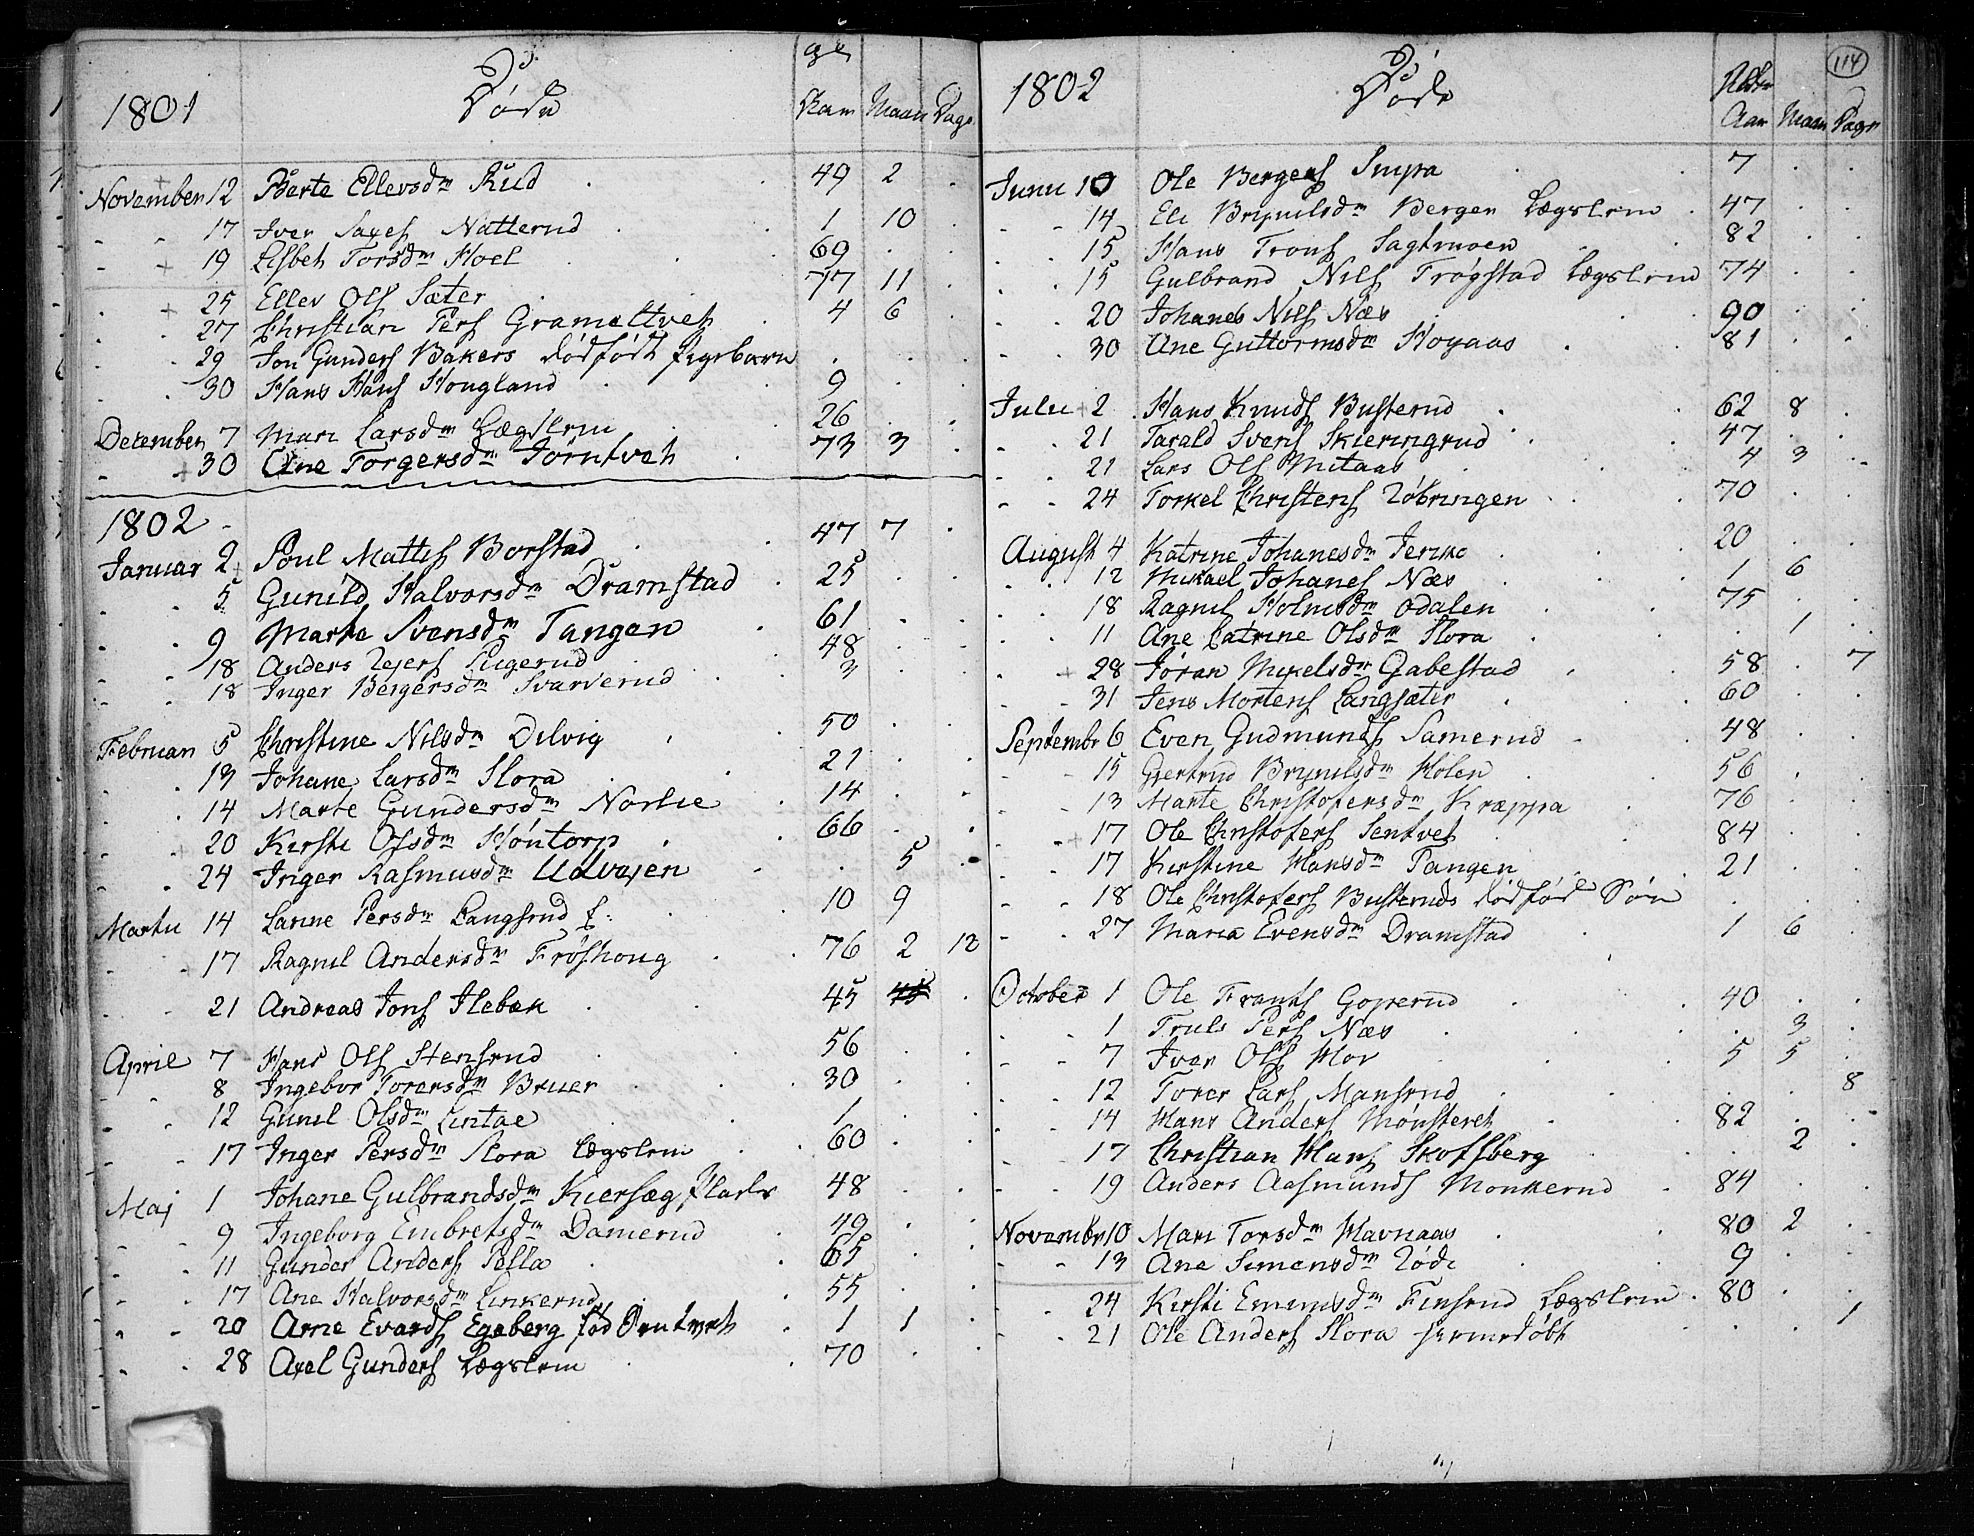 1801 Døde Aar Maan Dage
November 12 Berte Ellevsdr Rud 49 2
17 Iver Natterud 1 10
19 Lisbet Torsdr Hoel 69
25 Ellev Ols Sæter 77 11
27 Christian Pers Grameltvet 4 6
29 Jon Gunders Bakers dødfødt Pigebarn
30 Hans Hans Hougland 9
December 7 Mari Larsdr Lægslem 26
30 Ane Torgersdr Tørntvet 73 3
1802
Januar 2 Poul Mattis Borstad 47 7
5 Gunild Halvorsdr Dramstad 25
9 Marte Svensdr Tangen 61
18 Anders 48
18 Inger Bergersdr Svarverud 3
Februari 5 Christine Nilsdr Dilvig 50
13 Johane Larsdr Flora 21
14 Marte Gundersdr Norlie 14
20 Kersti Olsdr Høntorp 66
24 Inger Rasmusdr Udvejen 5
Martii 14 Lanne Persdr Langsrud f: 10 9
17 Ragnil Andersdr Frøshoug 76 2 12
21 Andreas Jons Ilebæk 45
April 7 Hans Ols Stensrud 56
8 Ingebor Torersdr Bruer 30
12 Gunil Olsdr Lintae 1
17 Inger Persdr Flora Lægslem 60
Maj 1 Johane Gulbrandsdr Kiersæg 48
9 Ingeborg Embretsdr Damerud 49
11 Gunder Anders Pella 65
17 Ane Halvorsdr Linkerud 55
20 Arne Evards Egeberg fød 1 1
28 Axel Gunders Lægslem 70
1802 Døde Alder Aar Maan Dage
114
Junii 10 Ole Bergers 7
14 Eli Brynilsdr Berger Lægslem 47
15 Hans Trons Sagtmoen 82
15 Gulbrand Nils Trøgstad Lægslem 74
20 Johanes Nils Næs 90
30 Ane Guttormsdr Hogaas 81
Julii 2 Hans Knuds Busterud 62 8
21 Tarald Svens Skieringrud 47
21 Lars Ols Mitaas 4 3
24 Torkel Christens 70
August 4 Katrine Johanesdr 20
12 Mikael Johanes Næs 1 6
18 Ragnil Holmsdr Odalen 75
11 Ane Catrine Olsdr Flora 1
28 Jøran Mikelsdr Gabestad 58 7
31 Jens Mortens Langsæter 60
Septembr 6 Even Gudmunds Samerud 48
15 Gjertrud Brynilsdr Holen 56
13 Marte Christofersdr Kræppa 76
17 Ole Christofers Sentvet 84
17 Kirstine Hansdr Tangen 21
18 Ole Christofers Busteruds dødfød Søn
27 Maria Evensdr Dramstad 1 6
October 1 Ole Frants Goperud 40
1 Truls Pers Næs 3
7 Iver Ols Hov 5 5
12 Torer Lars Mansrud 8
14 Hans Anders Mønsteret 82
17 Christian Hans Skofsberg 2
19 Anders Aasmunds Monkerud 84
Novembr 10 Mari Torsdr Havnaas 80 2
13 Ane Simensdr 9
24 Kirsti Finsrud Lægslem 80
21 Ole Anders Flora hjemedøbt 1